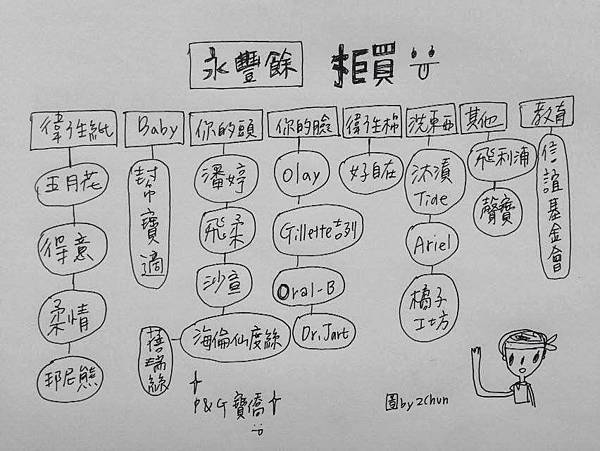 永豐餘 拒買
衛生紙
五月花
得意
柔情
邦尼熊
Baby
幫寶適
蓓瑞絲
你的頭
潘婷
飛柔
沙宣
海倫仙度絲
P&G 寶僑
你的臉
Olay
Gillette吉列
Oral-B
Dr.Jart
衛生棉
好自在
洗東西
汰漬
Tide
Ariel
橘子
工坊
其他
飛利浦
聲寶
教育
信誼基金會
圖by2chun